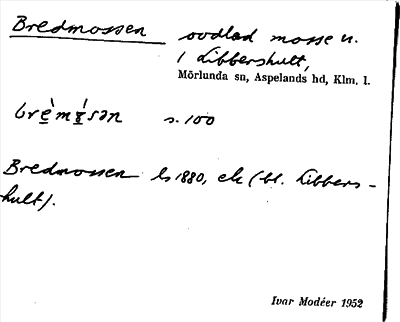 Bredmossen oodlad mosse u.
i Libbershult,
Mörlunda sn, Aspelands hd, Klm. l.
s. 100
Bredmossen ls 1880, ek (bl. Libbers-
hult).
Ivar Modéer 1952